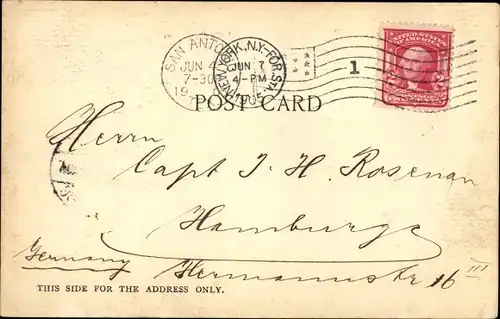 SAN ANTO
JUN 4
7-30
19
NEW YORK, N.Y.-FOR. STA.
JUN 7
4-PM
1905
1
UNITED STATES
OF AMERICA
2 2
POST CARD
Herrn
Capt J. H. Rosenau
Hamburg
Germany Hermannstr 16 III
THIS SIDE FOR THE ADDRESS ONLY.